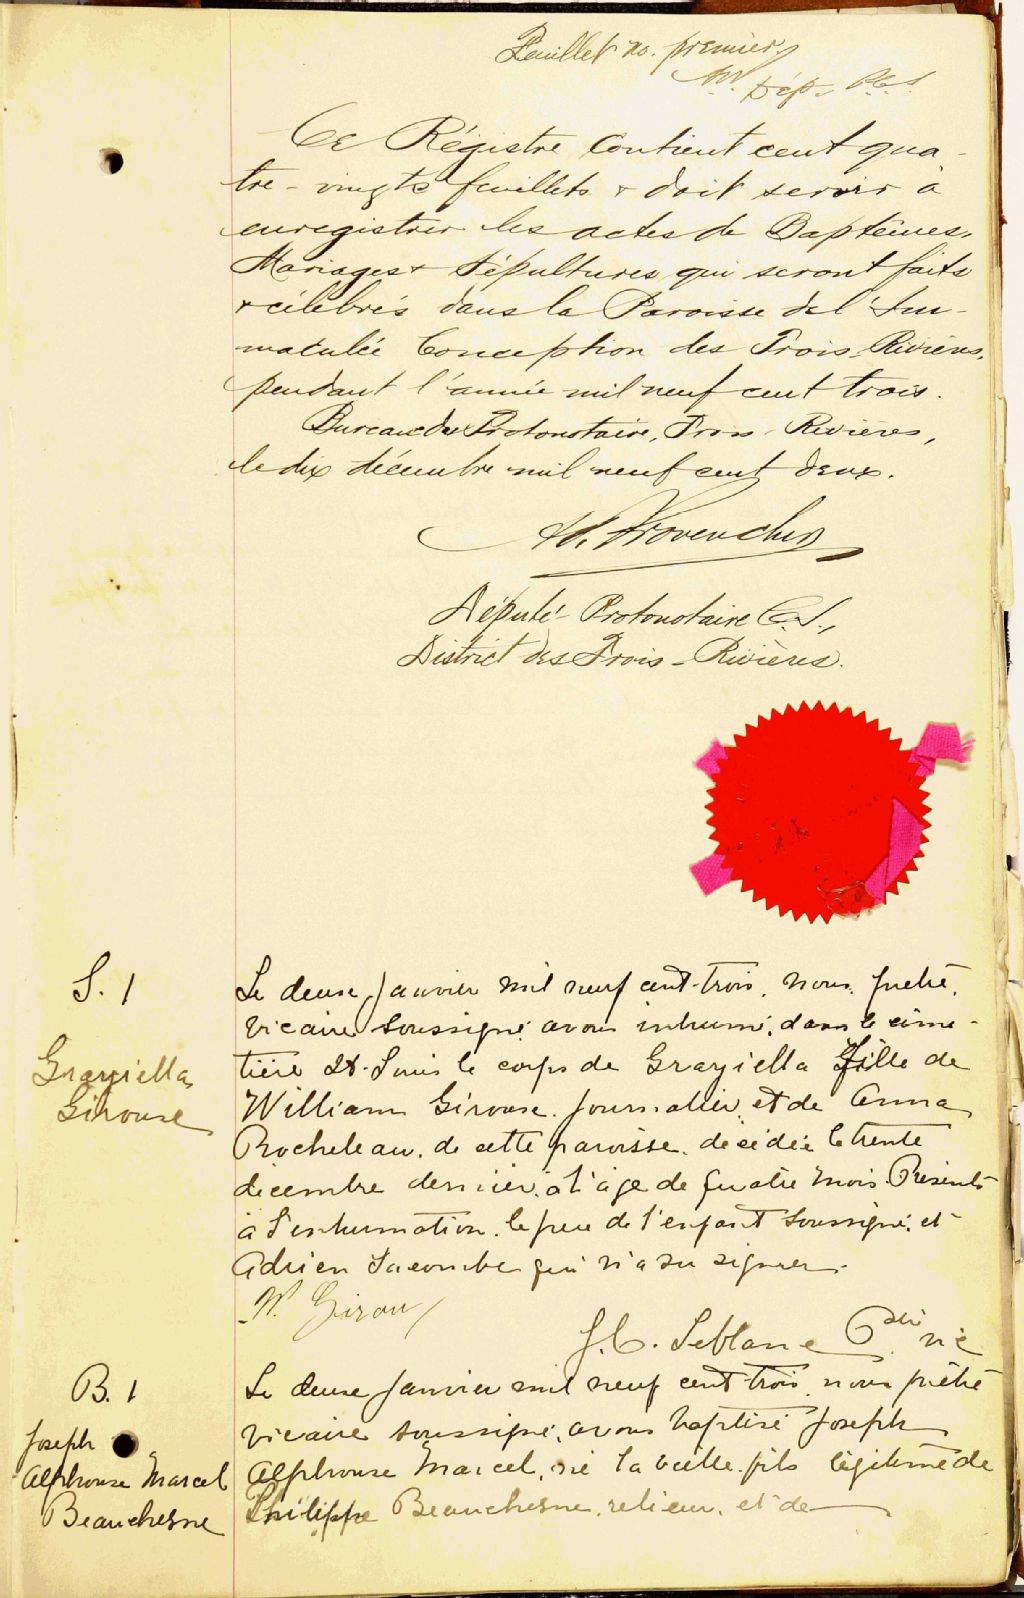 Feuillet no. premier
Dép. P.C.S
Ce Régistre contient cent qua-
tre-vingts feuillets & doit servir à
enregistrer les actes de Baptêmes,
Mariages & Sépultures qui seront faits
& célébrés dans la Paroisse de l'Im-
maculée Conception des Trois-Rivières,
pendant l'année mil neuf cent trois.
Bureau du Protonotaire, Trois-Rivières,
le dix décembre mil neuf cent deux.
Provencher
Député-Protonotaire C.S.,
District des Trois-Rivières.
S. 1
Graziella
Girouse
Le deuse Janvier mil neuf cent-trois, nous, prêtre,
vicaire soussigné avons inhumé, dans le cime-
tière St. Louis le corps de Graziella fille de
William Girouse, Journalier, et de Anna
Rocheleau, de cette paroisse, décédée le trente
décembre dernier, à l'âge de quatre mois. Présents
à l'inhumation, le père de l'enfant soussigné, et
Adrien Lacombe qui n'a su signer.
W. Girou
J. C. Leblanc Ptre vic
B. 1
Joseph
Alphonse Marcel
Beauchesne
Le deuse Janvier mil neuf cent trois, nous prêtre
vicaire soussigné, avons baptisé Joseph
Alphonse Marcel, né la veille, fils légitime de
Philippe Beauchesne, relieur, et de